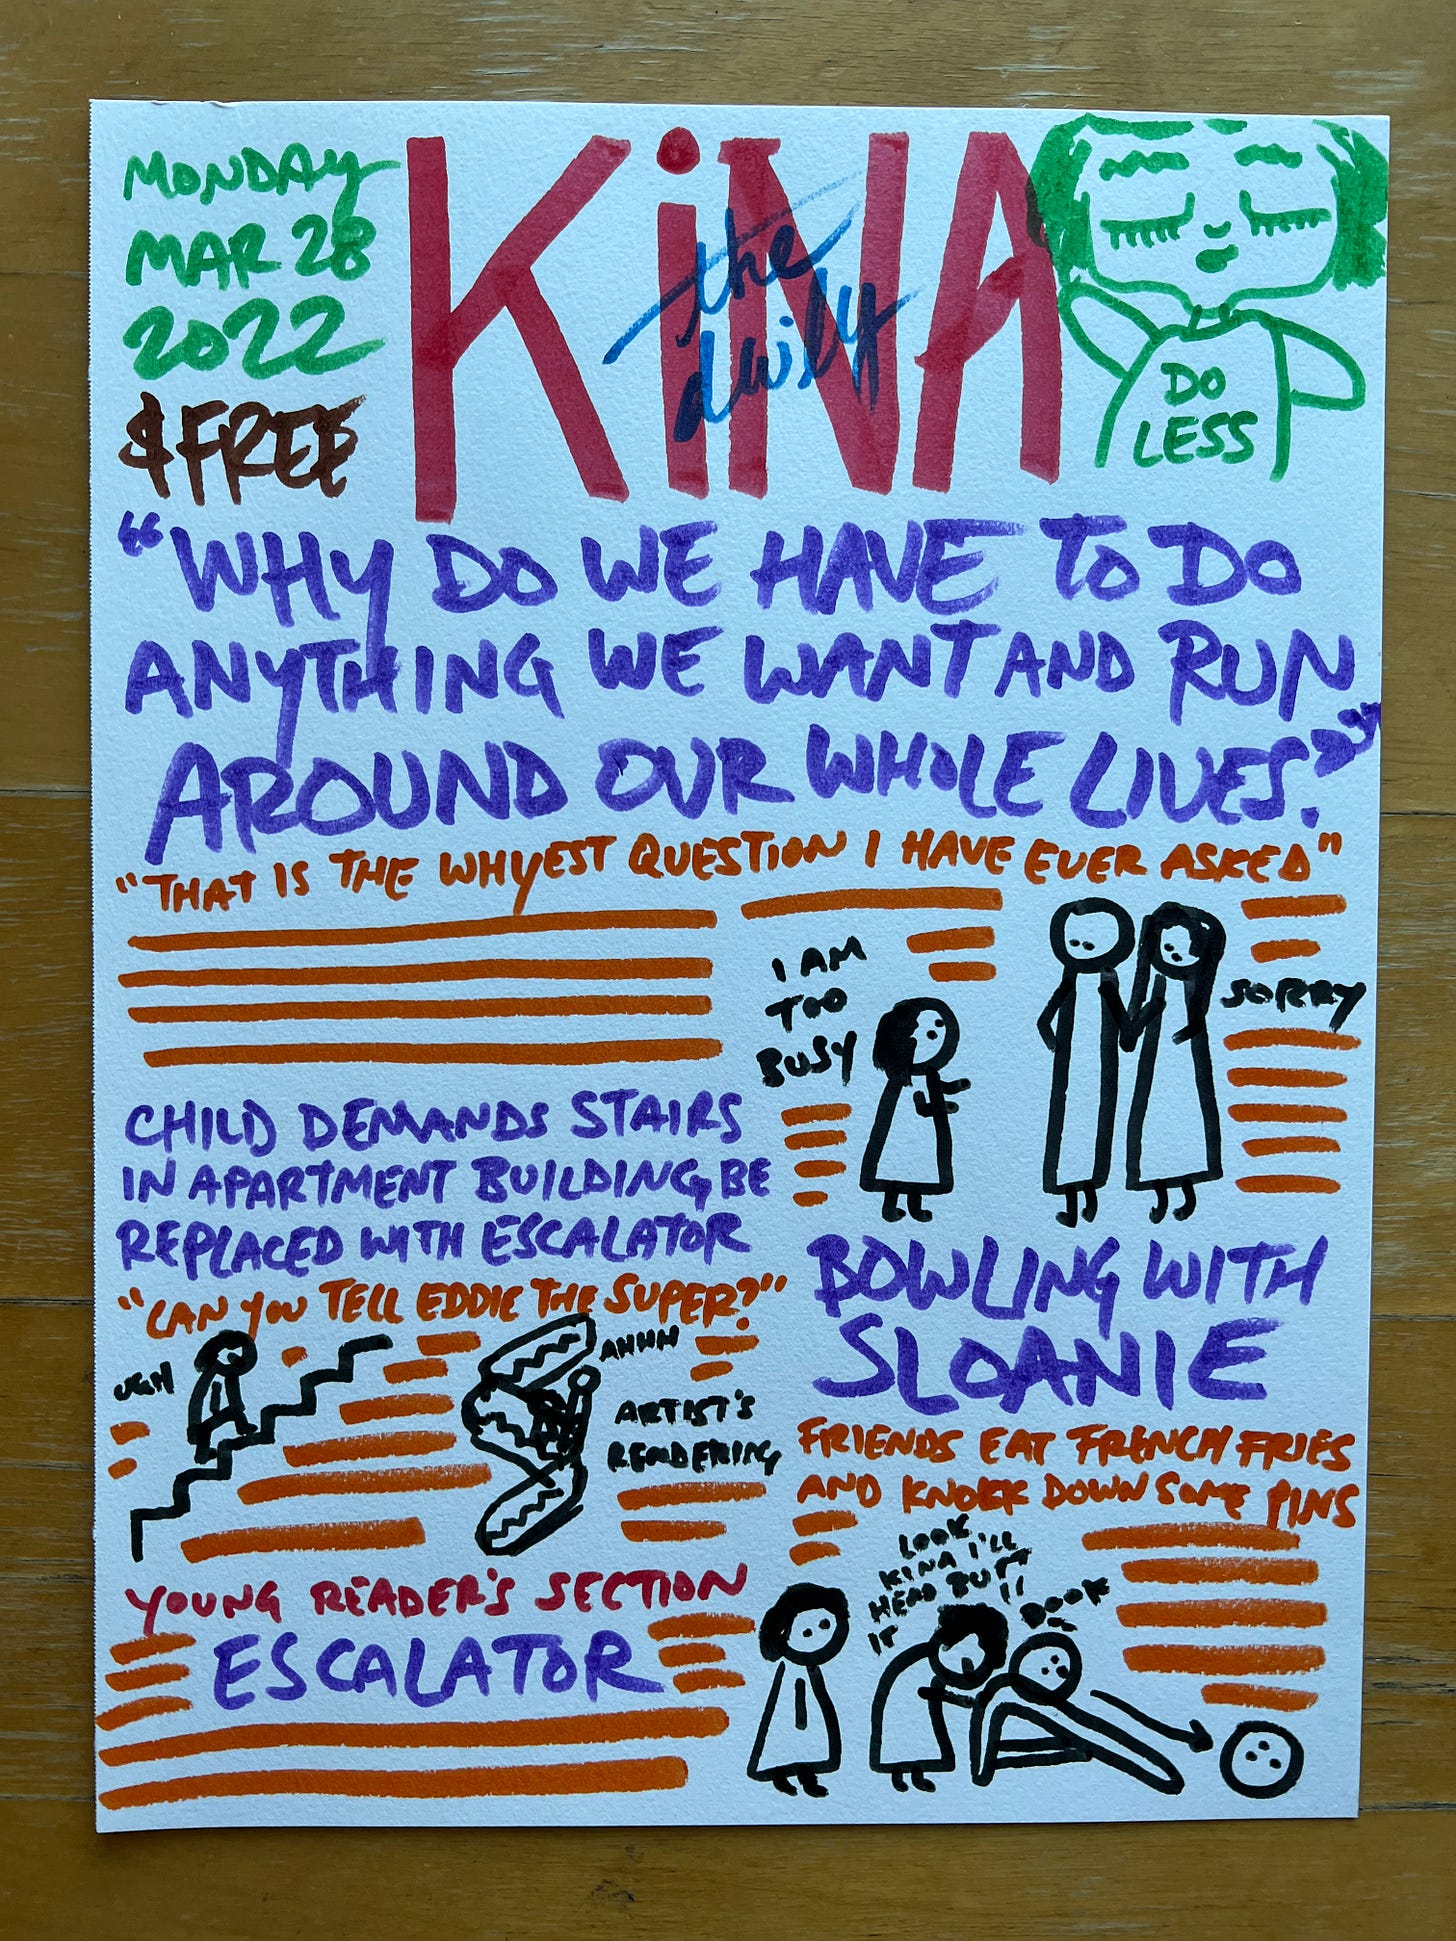 MONDAY
MAR 28
2022
$FREE
KiNA
the
daily
DO
LESS
"WHY DO WE HAVE TO DO
ANYTHING WE WANT AND RUN
AROUND OUR WHOLE LIVES."
"THAT IS THE WHYEST QUESTION I HAVE EVER ASKED"
I AM
TOO
BUSY
SORRY
CHILD DEMANDS STAIRS
IN APARTMENT BUILDING BE
REPLACED WITH ESCALATOR
"CAN YOU TELL EDDIE THE SUPER?"
UGH
AHHH
ARTIST'S
RENDERING
YOUNG READER'S SECTION
ESCALATOR
BOWLING WITH
SLOANIE
FRIENDS EAT FRENCH FRIES
AND KNOCK DOWN SOME PINS
LOOK
KINA I'LL
HEAD BUTT
IT
DOOK